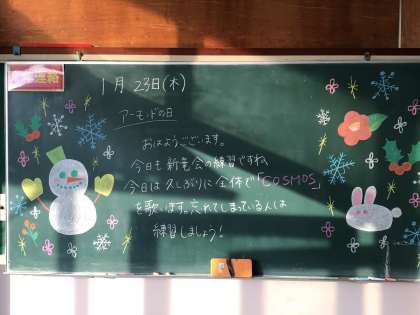 連絡
1月 23日(木)
アーモンドの日
おはようございます。
今日も新竜会の練習ですね
今日は久しぶりに全体で「COSMOS」
を歌います。忘れてしまっている人は
練習しましょう!